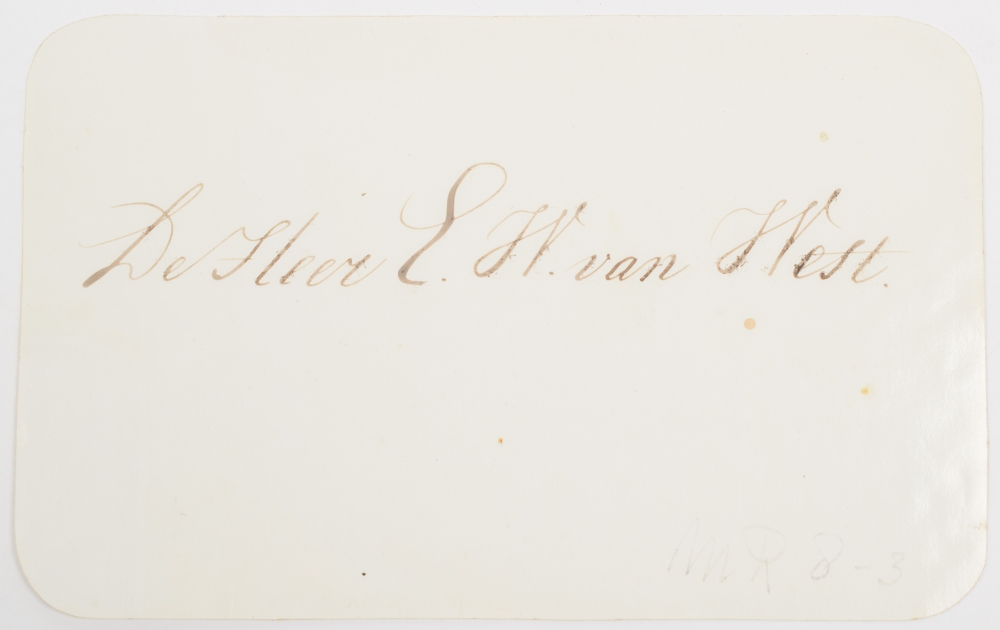 De Heer E. W. van West.
MR 8-3